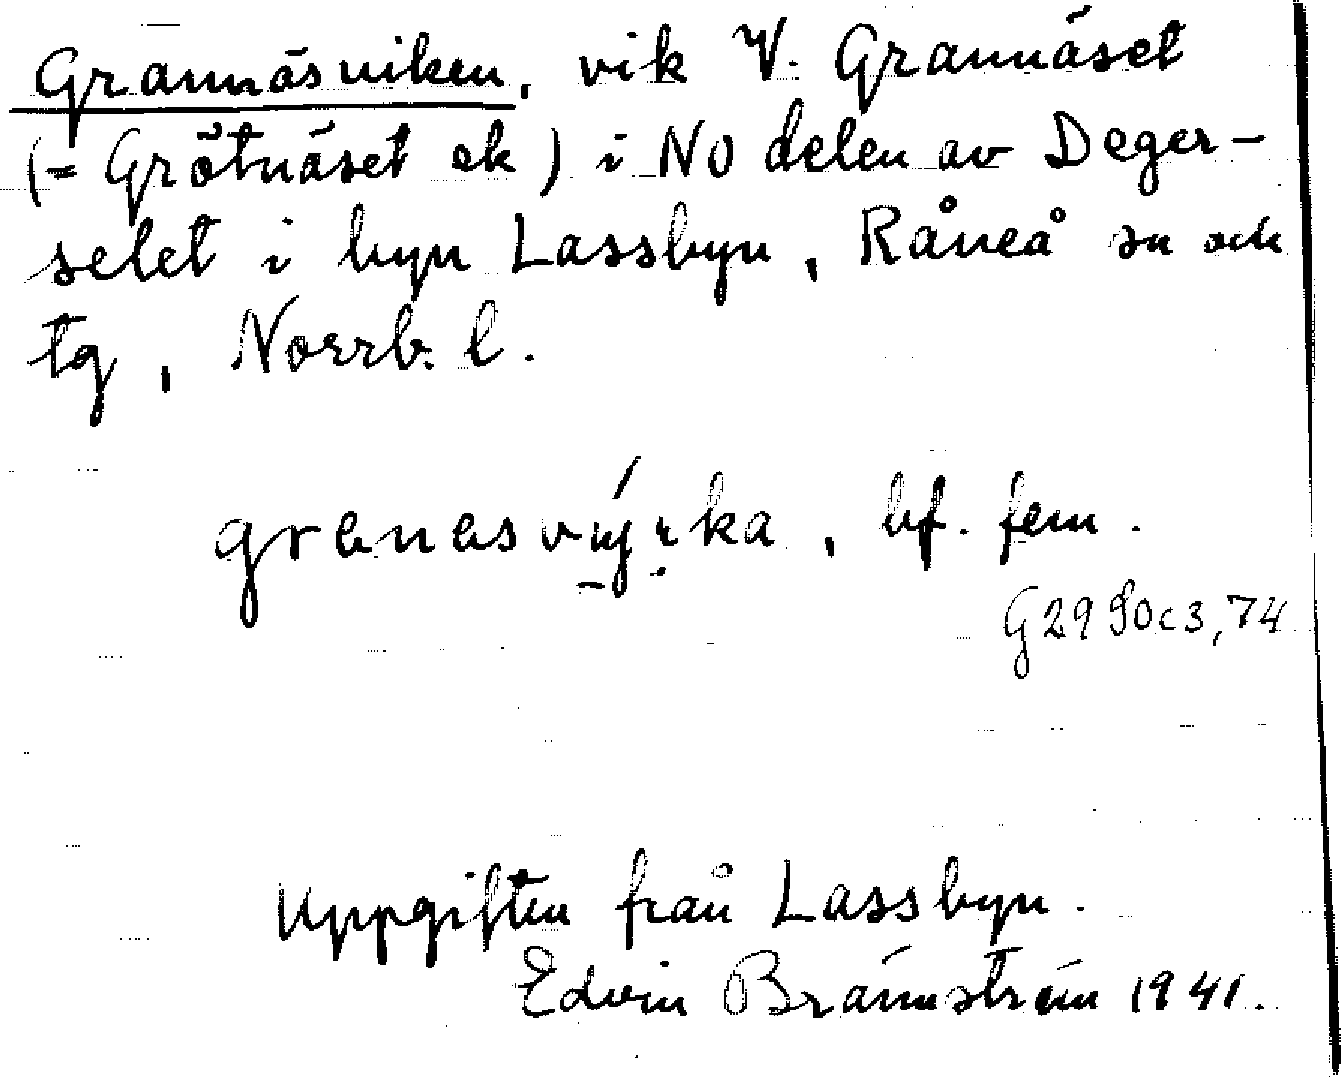 Grannäsviken, vik V. Grannäset
(= Grötnäset ek) i NO delen av Deger-
selet i byn Lassbyn, Råneå sn och
tg, Norrb. l.
bf. fem.
G29 SO c3,74
Uppgiften från Lassbyn.
Edvin Brännström 1941.